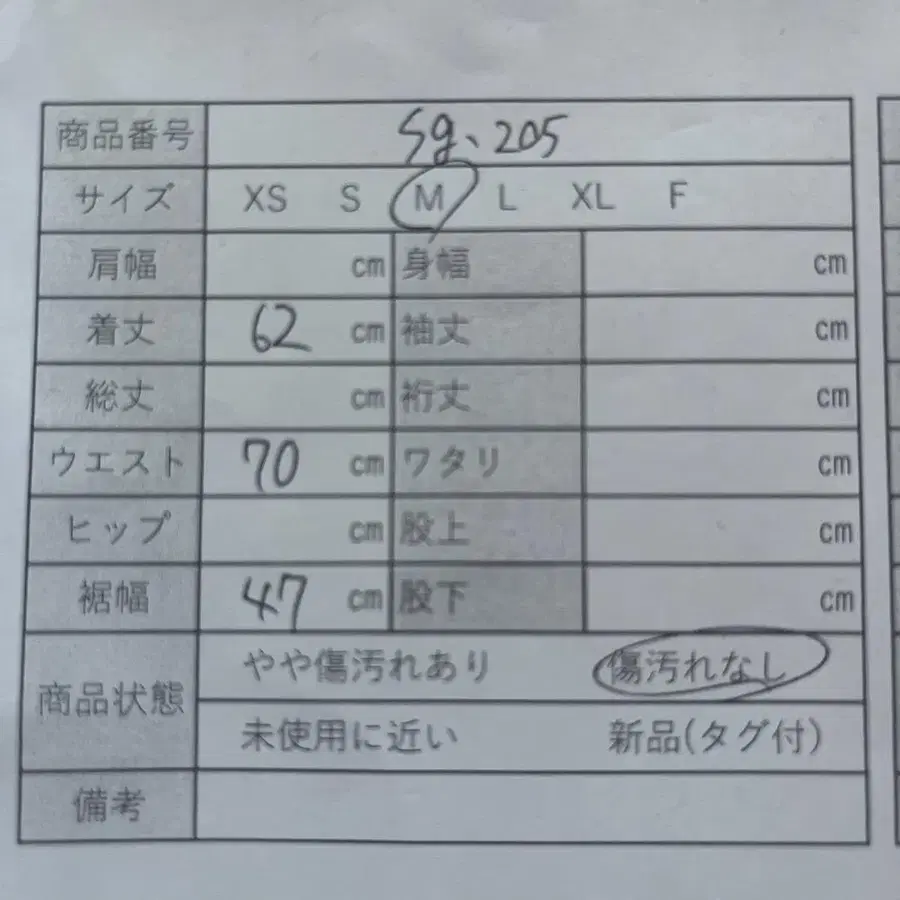 商品番号 Sg、205
サイズ XS S M L XL F
肩幅 cm 身幅 cm
着丈 62 cm 袖丈 cm
総丈 cm 裄丈 cm
ウエスト 70 cm ワタリ cm
ヒップ cm 股上 cm
裾幅 47 cm 股下 cm
商品状態 やや傷汚れあり 傷汚れなし
未使用に近い 新品(タグ付)
備考